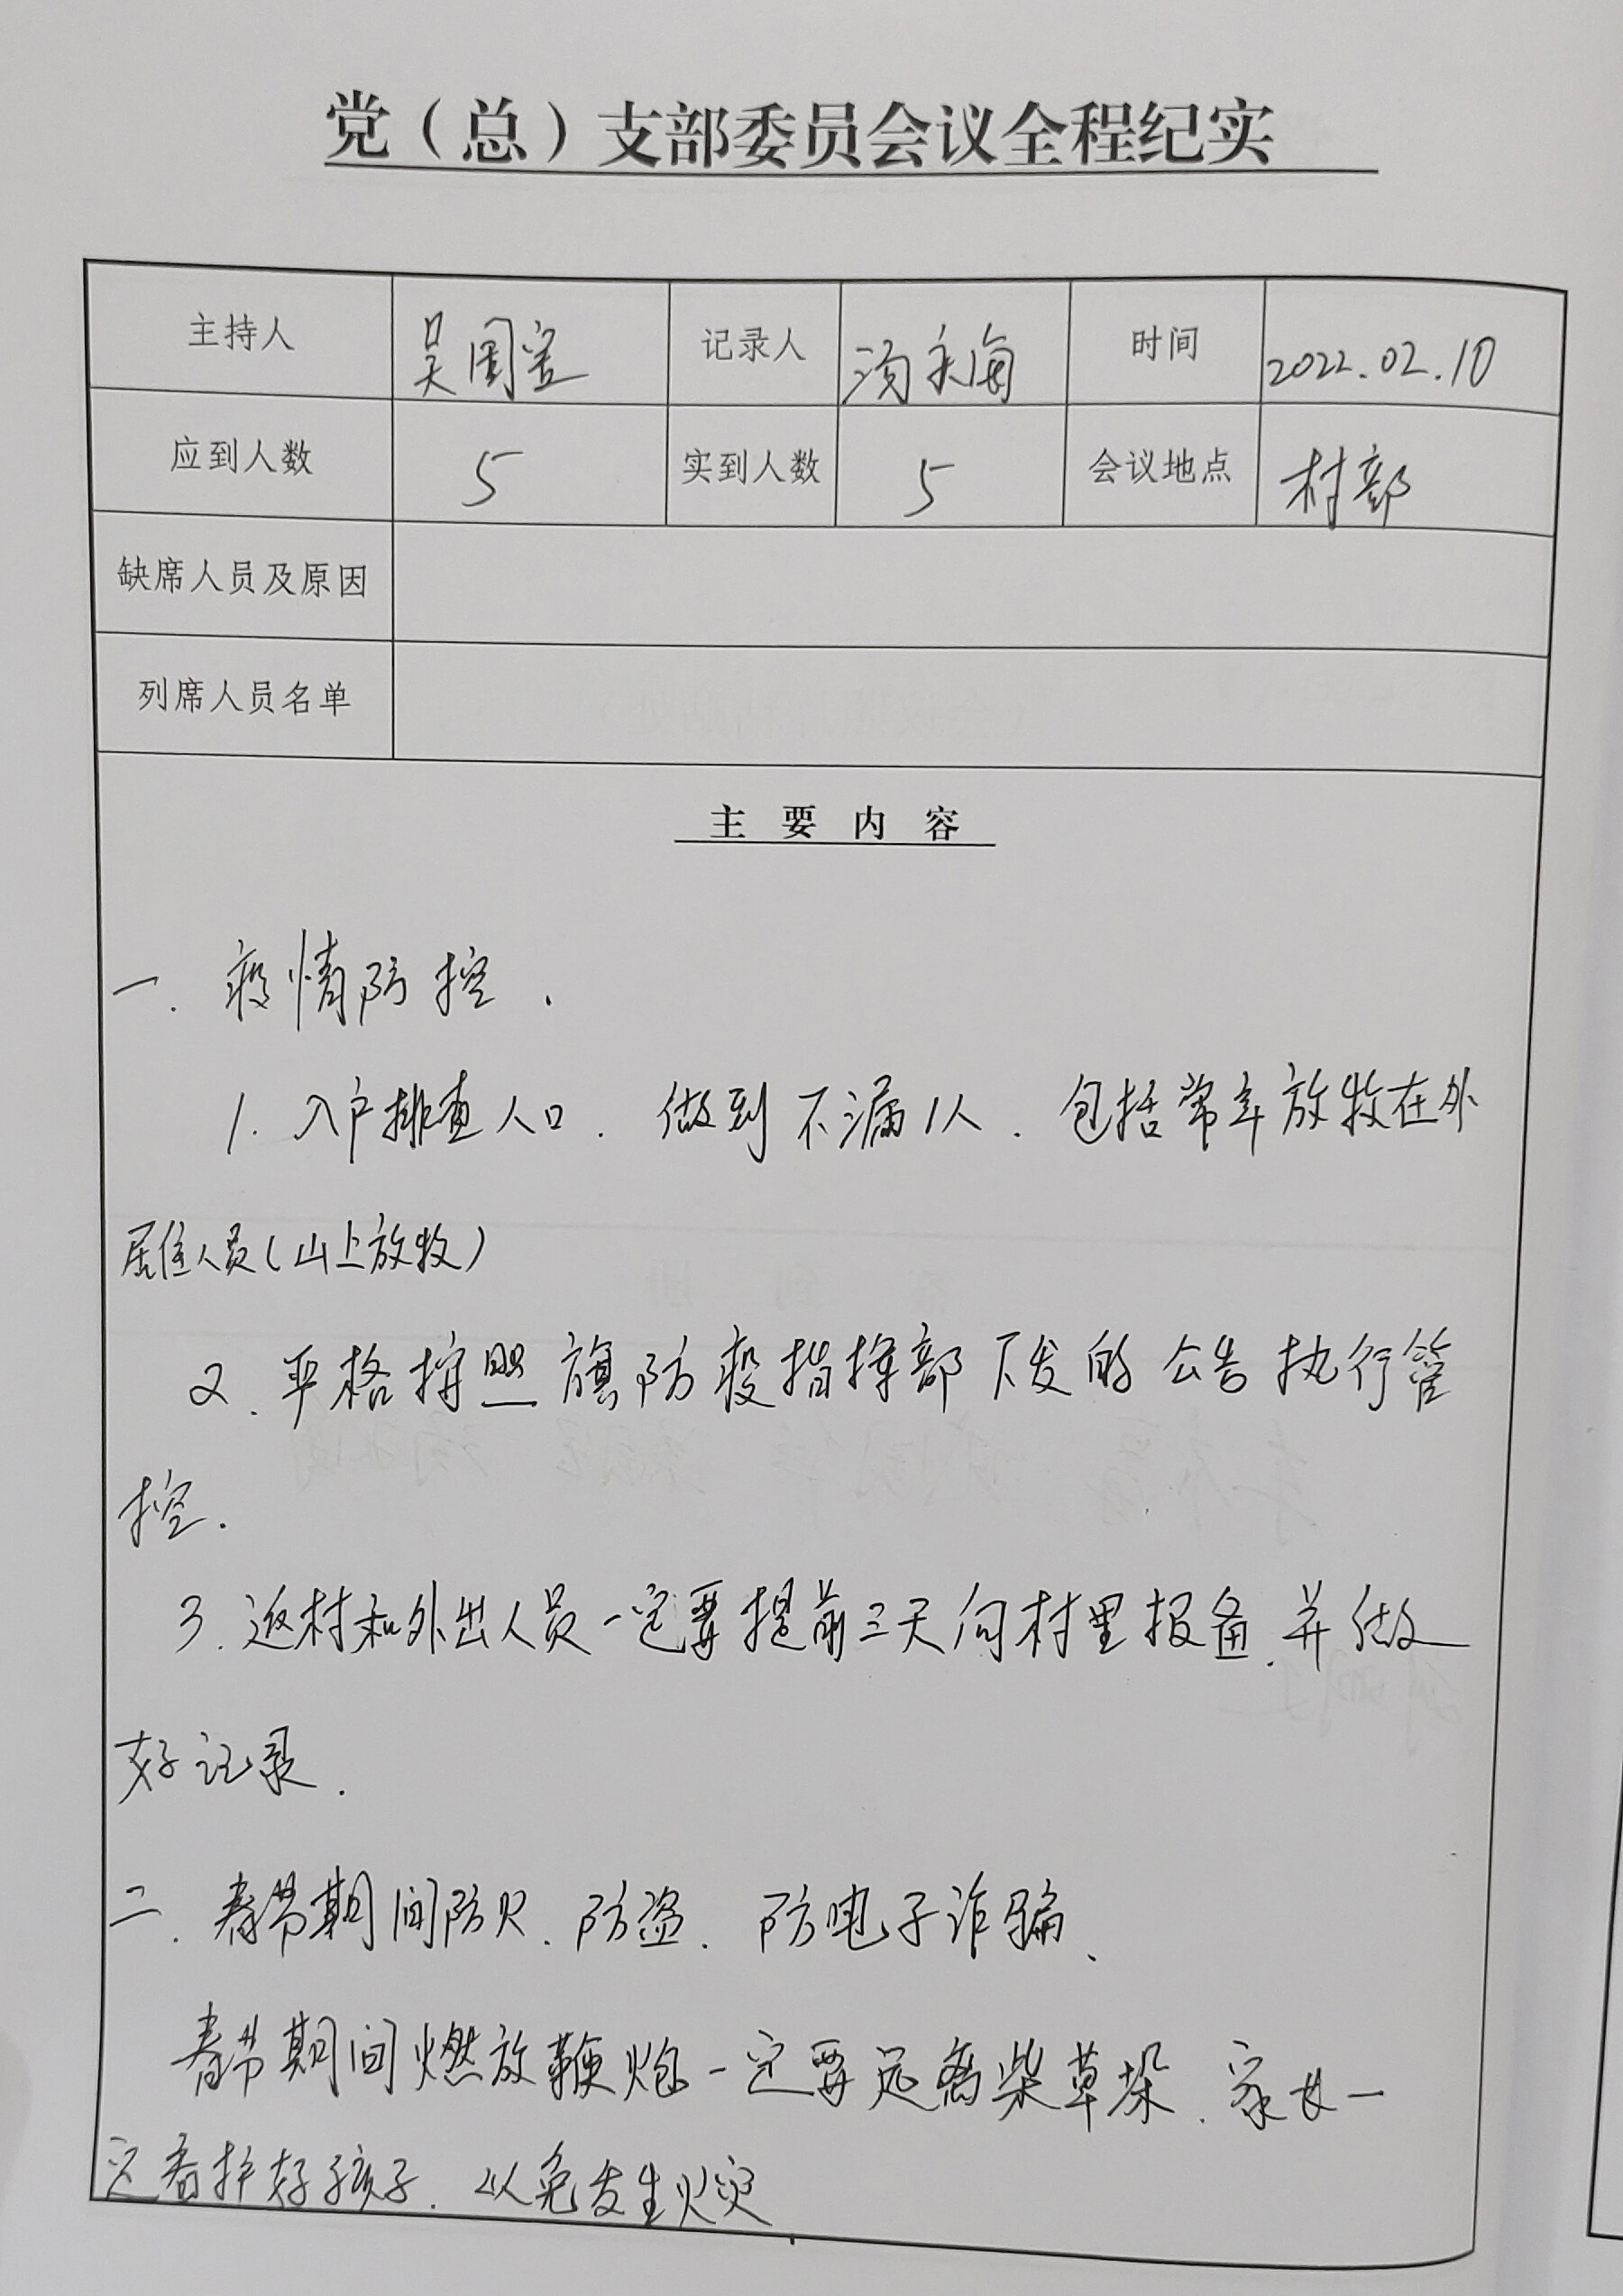 党（总）支部委员会议全程纪实
主持人 吴国 记录人 汤永海 时间 2022.02.10
应到人数 5 实到人数 5 会议地点 村部
缺席人员及原因
列席人员名单
主要内容
一.疫情防控.
1.入户排查人口.做到不漏1人.包括常年放牧在外
居住人员(山上放牧)
2.严格按照旗防疫指挥部下发的公告执行管
控.
3.返村和外出人员一定要提前三天向村里报备.并做
好记录.
二.春节期间防火.防盗.防电子诈骗、
春节期间燃放鞭炮一定要远离柴草垛.家长一
定看护好孩子.以免发生火灾